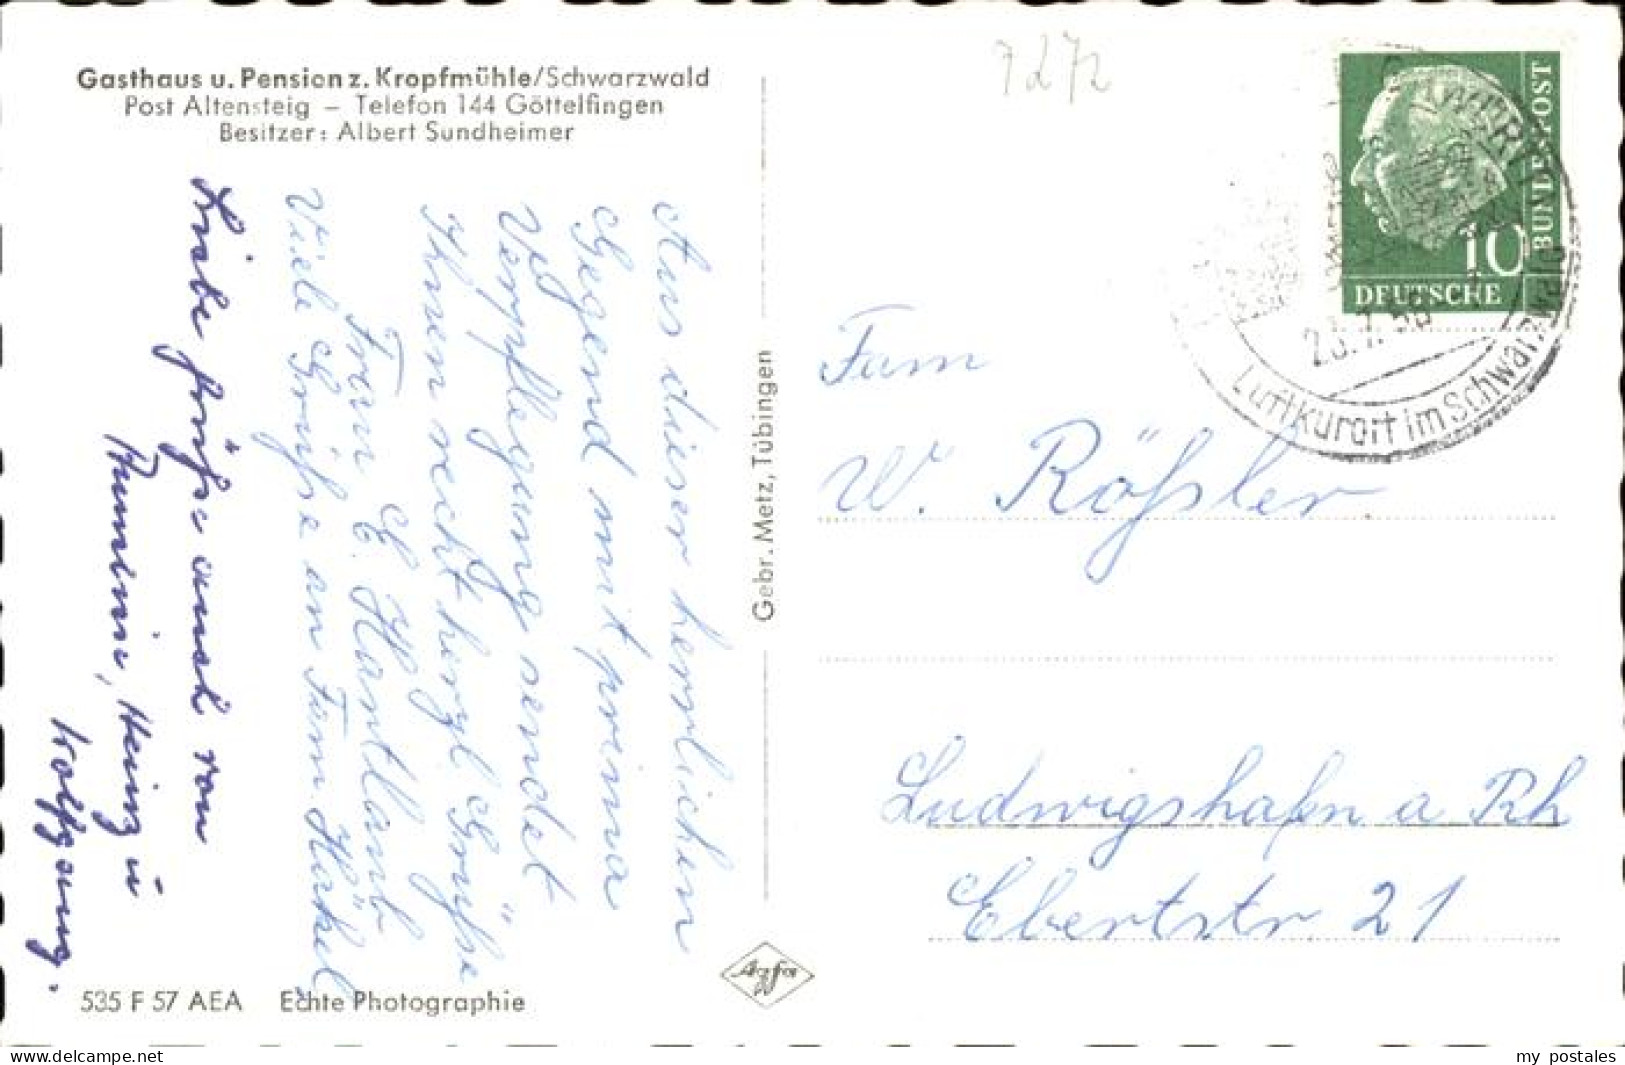 Gasthaus u. Pension z. Kropfmühle/Schwarzwald
Post Altensteig – Telefon 144 Göttelfingen
Besitzer: Albert Sundheimer
Aus dieser herrlichen
Gegend mit prima
Verpflegung sendet
Ihnen recht herzl. Grüße
Frau E.
Viele Grüße an Fam
Liebe Grüße auch von
Heinz u
Wolfgang.
535 F 57 AEA Echte Photographie
Gebr. Metz, Tübingen
Agfa
7272
DEUTSCHE
BUNDESPOST
10
Luftkurort im Schwarzwald
Fam
W. Rößler
Ludwigshafen a Rh
Ebertstr 21
www.delcampe.net
my_postales